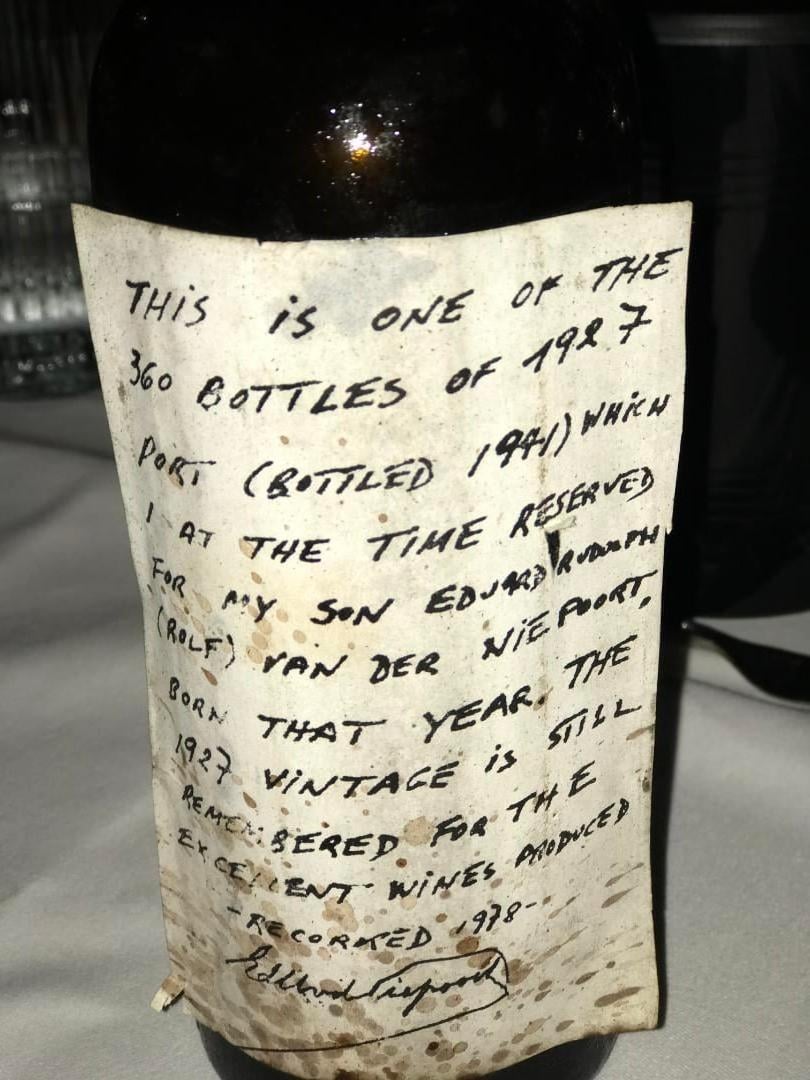 THIS IS ONE OF THE
360 BOTTLES OF 1927
PORT (BOTTLED 1941) WHICH
I AT THE TIME RESERVED
FOR MY SON EDUARD RUDOLPH
(ROLF) VAN DER NIEPOORT,
BORN THAT YEAR. THE
1927 VINTAGE IS STILL
REMEMBERED FOR THE
EXCELLENT WINES PRODUCED
-RECORKED 1978-